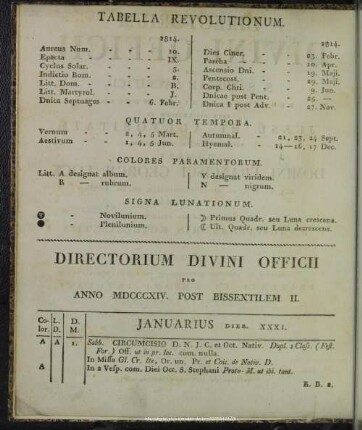 TABELLA REVOLUTIONUM.
1814.
Aureus Num. - - 10.
Epacta - - IX.
Cyclus Solar. - - 3.
Indictio Rom. - - 2.
Litt. Dom. - - B.
Litt. Martyrol. - -
Dnica Septuages - 6. Febr.
1814.
Dies Ciner. - - 23. Febr.
Pascha - - 10. Apr.
Ascensio Dni. - - 19. Maji.
Pentecost. - - 29. Maji.
Corp. Chri. - - 9. Jun.
Dnicae post Pent. - 25. —
Dnica I post Adv. - 27. Nov.
QUATUOR TEMPORA.
Vernum - - 2, 4, 5 Mart.
Aestivum - - 1, 4, 5 Jun.
Autumnal. - 21, 23, 24 Sept.
Hyemal. - 14—16, 17 Dec.
COLORES PARAMENTORUM.
Litt. A designat album.
R — rubrum.
V designat viridem.
N — nigrum.
SIGNA LUNATIONUM.
- Novilunium.
- Plenilunium.
☽ Primus Quadr. seu Luna crescens.
☾ Ult. Quadr. seu Luna decrescens.
DIRECTORIUM DIVINI OFFICII
PRO
ANNO MDCCCXIV. POST BISSEXTILEM II.
Color. L. D. D. M. JANUARIUS DIER. XXXI.
A A 1. Sabb. CIRCUMCISIO D. N. J. C. et Oct. Nativ. Dupl. 2 Class. (Fest.
For.) Off. ut in pr. loc. com. nulla.
In Missa Gl. Cr. Ite, Or. un. Pr. et Coic. de Nativ. D.
A In 2 Vesp. com. Diei Oct. S. Stephani Proto-M. ut ibi. tant.
R. B. 2.